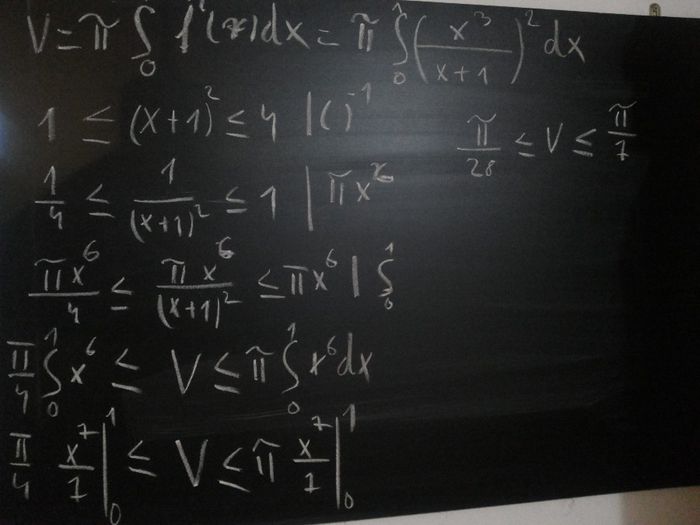 V = π ∫₀¹ f²(x)dx = π ∫₀¹ (x³/(x+1))² dx
1 ≤ (x+1)² ≤ 4 | ( )⁻¹
π/28 ≤ V ≤ π/7
1/4 ≤ 1/(x+1)² ≤ 1 | πx⁶
πx⁶/4 ≤ πx⁶/(x+1)² ≤ πx⁶ | ∫₀¹
π/4 ∫₀¹ x⁶ ≤ V ≤ π ∫₀¹ x⁶dx
π/4 x⁷/7 |₀¹ ≤ V ≤ π x⁷/7 |₀¹